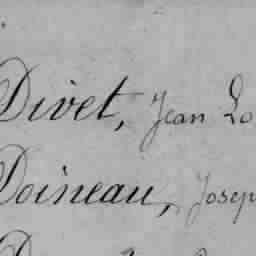 Divet, Jean Lo
Doineau, Josep